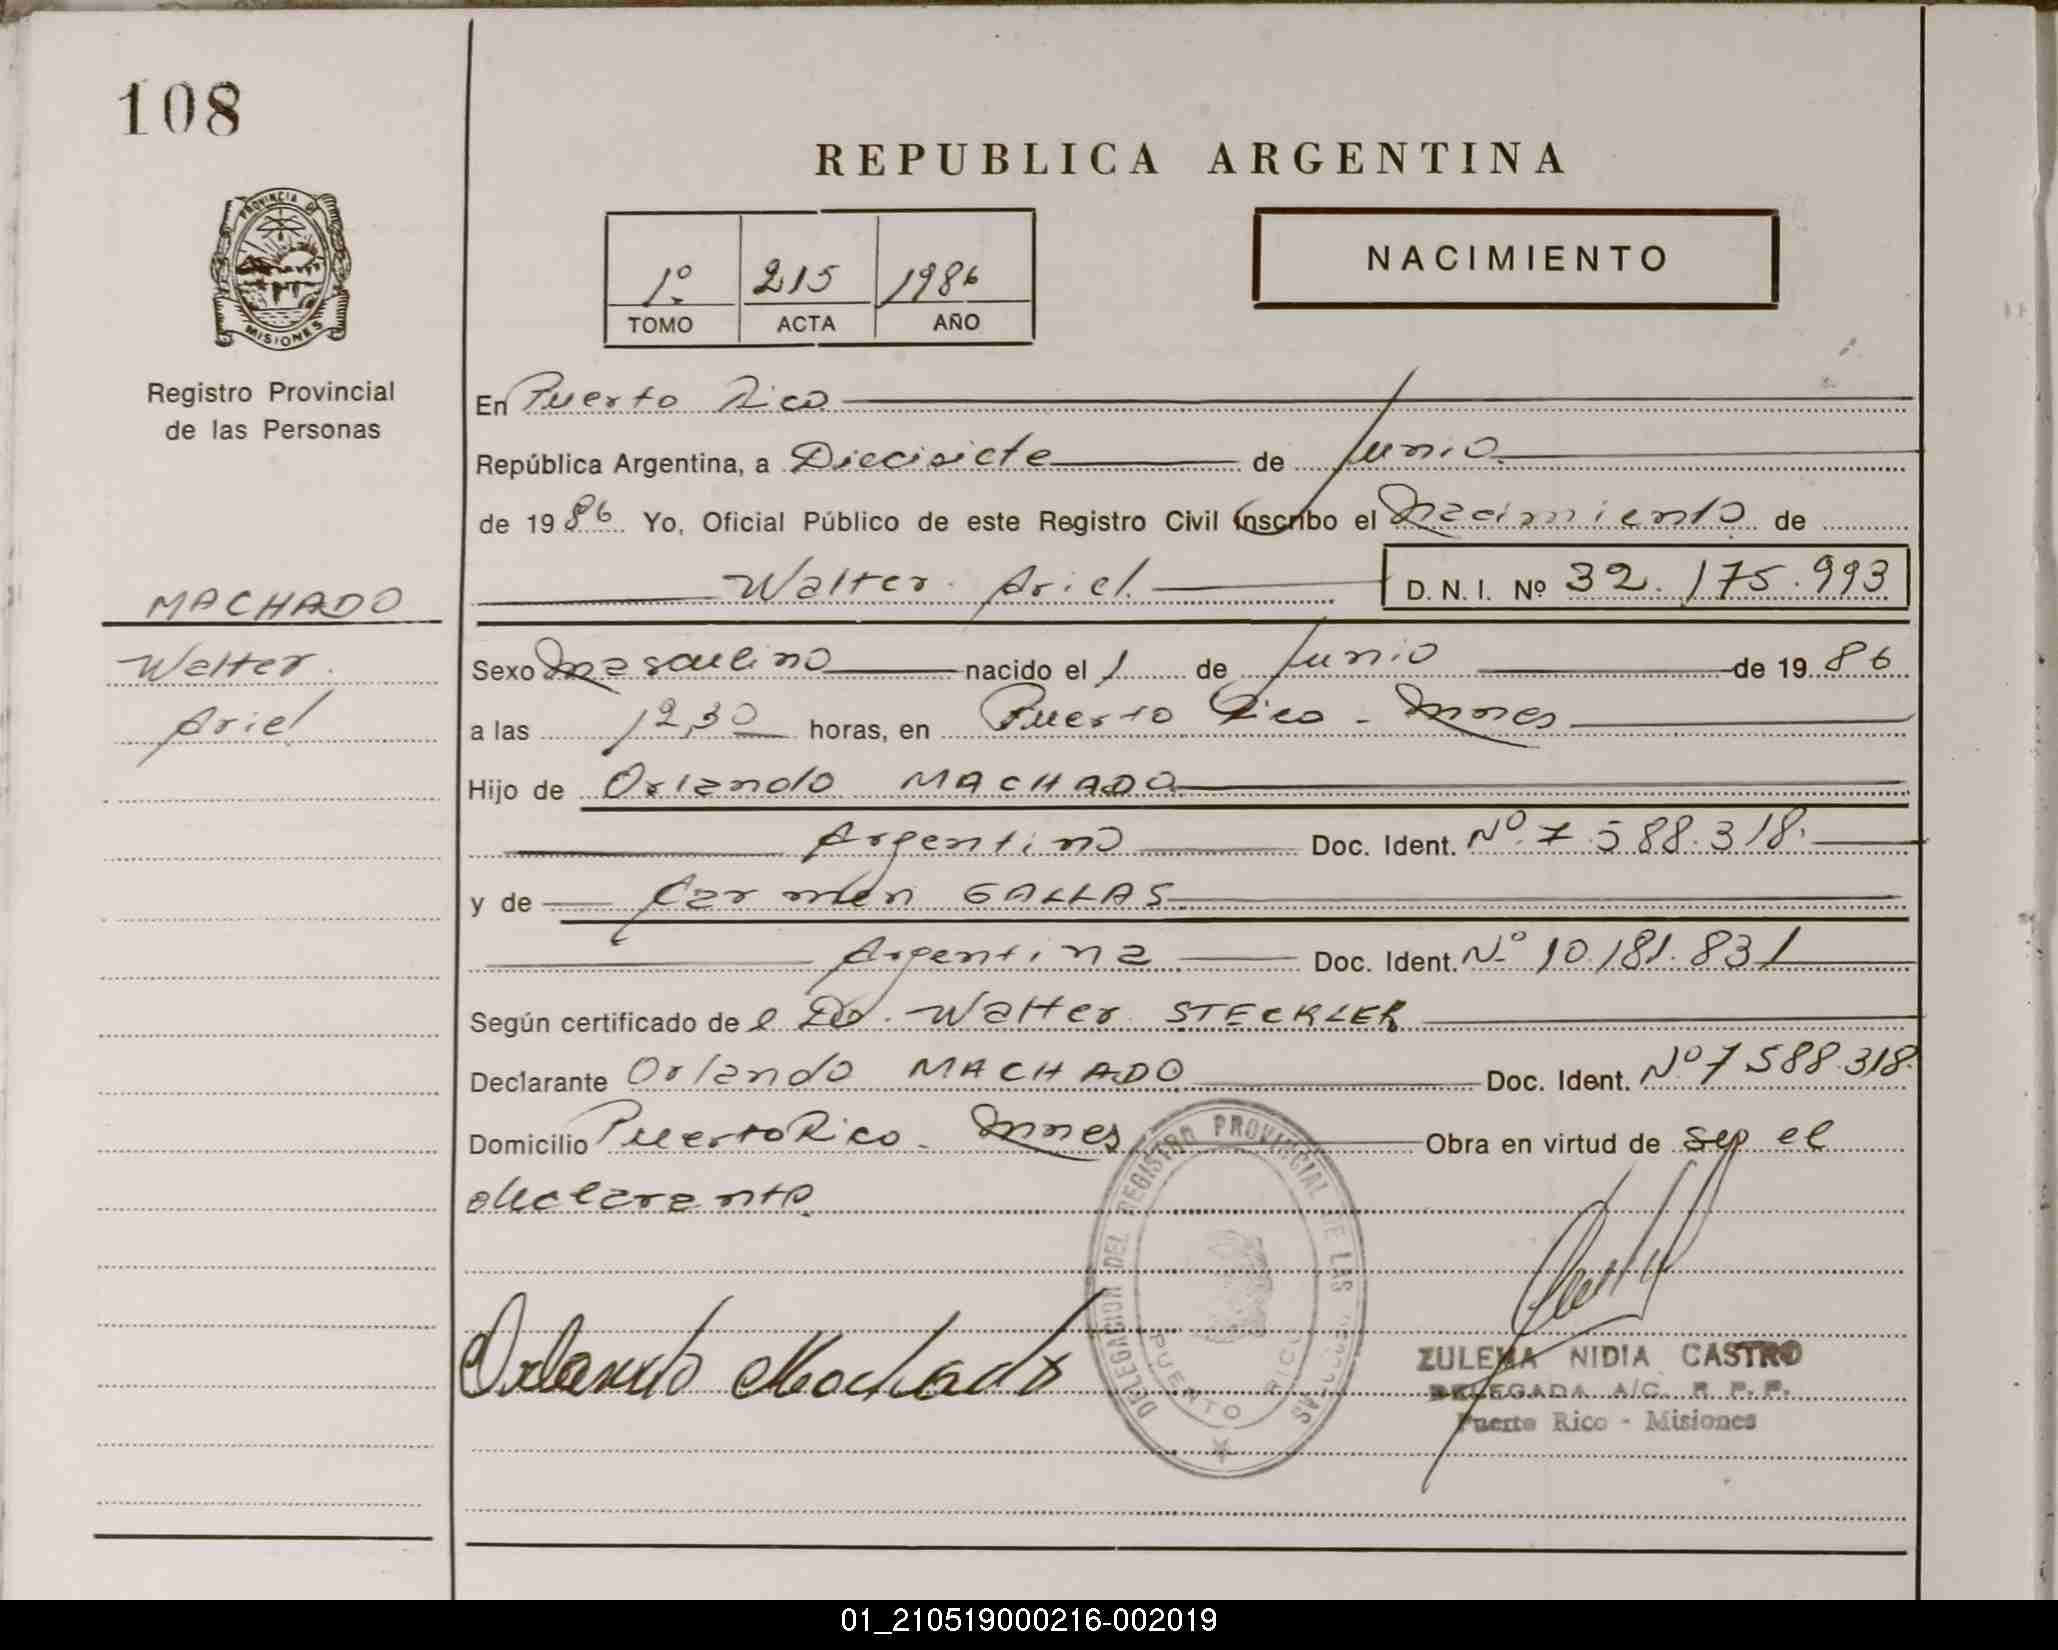 108
REPUBLICA ARGENTINA
PROVINCIA DE
MISIONES
Registro Provincial
de las Personas
1º 215 1986
TOMO ACTA AÑO
NACIMIENTO
En Puerto Rico
República Argentina, a Diecisiete de Junio
de 1986 Yo, Oficial Público de este Registro Civil inscribo el Nacimiento de
Walter Ariel D. N. I. Nº 32.175.993
MACHADO
Walter
Ariel
Sexo Masculino nacido el 1 de Junio de 1986
a las 12,30 horas, en Puerto Rico - Mnes
Hijo de Orlando MACHADO
Argentino Doc. Ident. Nº 7.588.318.
y de Carmen GALLAS
Argentina Doc. Ident. Nº 10.181.831
Según certificado del Dr. Walter STECKLER
Declarante Orlando MACHADO Doc. Ident. Nº 7588.318.
Domicilio Puerto Rico - Mnes Obra en virtud de ser el
declarante
DELEGACION DEL REGISTRO PROVINCIAL DE LAS PERSONAS
PUERTO RICO
Orlando Machado
ZULEMA NIDIA CASTRO
DELEGADA A/C. R. P. P.
Puerto Rico - Misiones
01_210519000216-002019